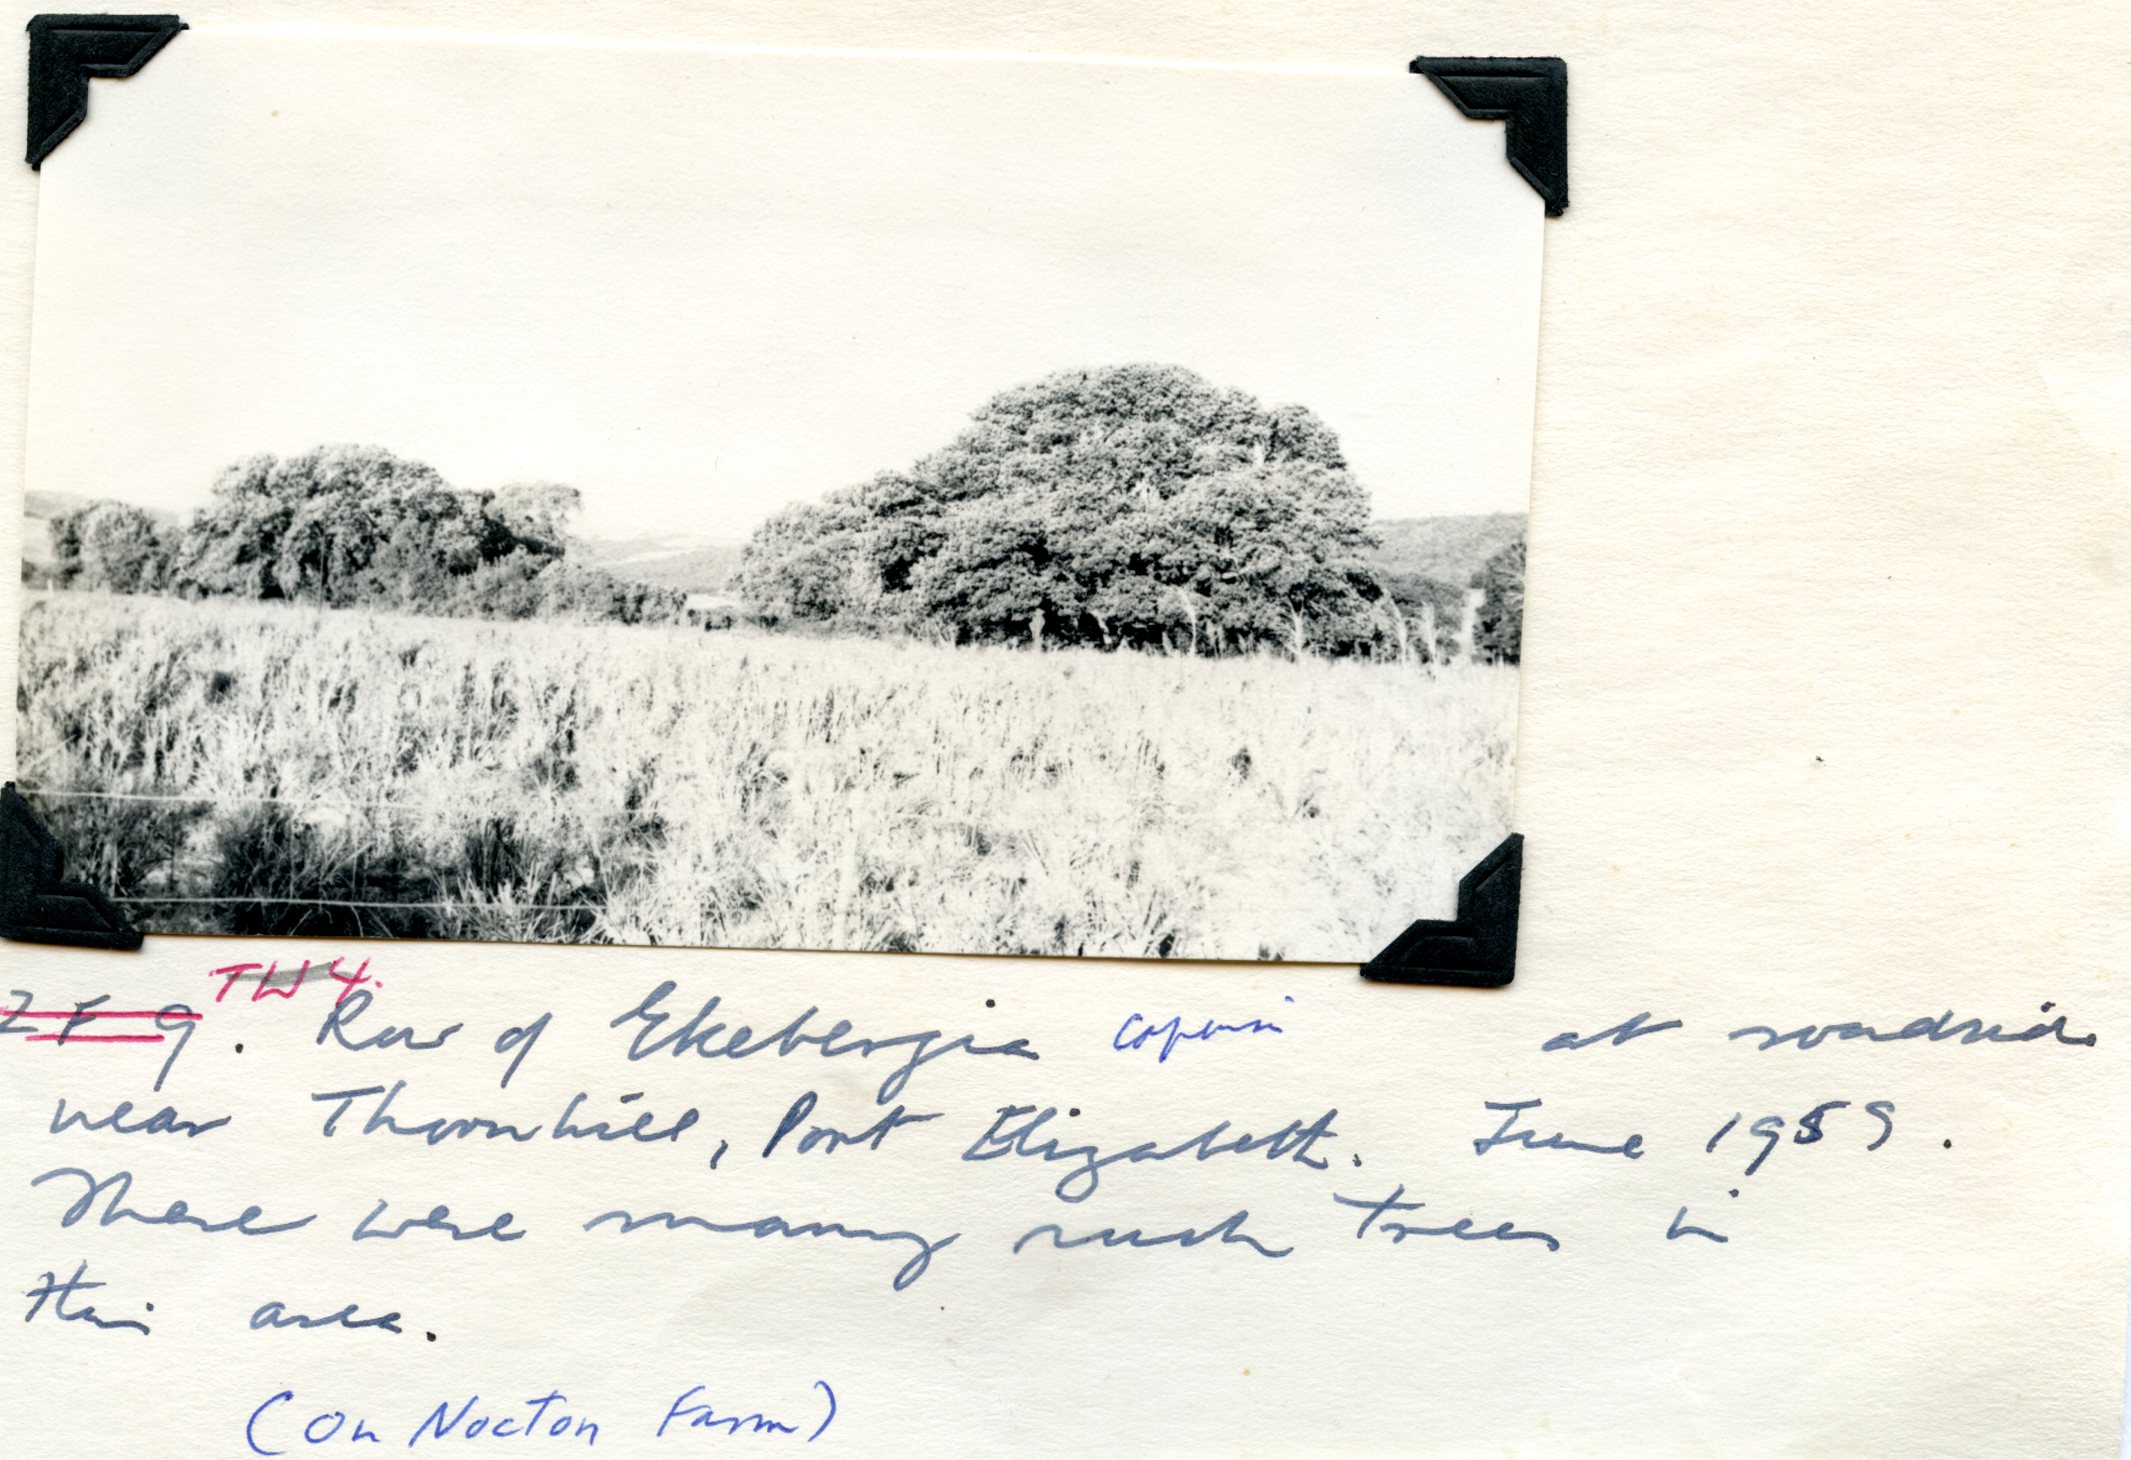 TW4.
ZF9. Row of Ekebergia capensis at roadside
near Thornhill, Port Elizabeth. June 1959.
There were many such trees in
this area.
(on Nocton Farm)